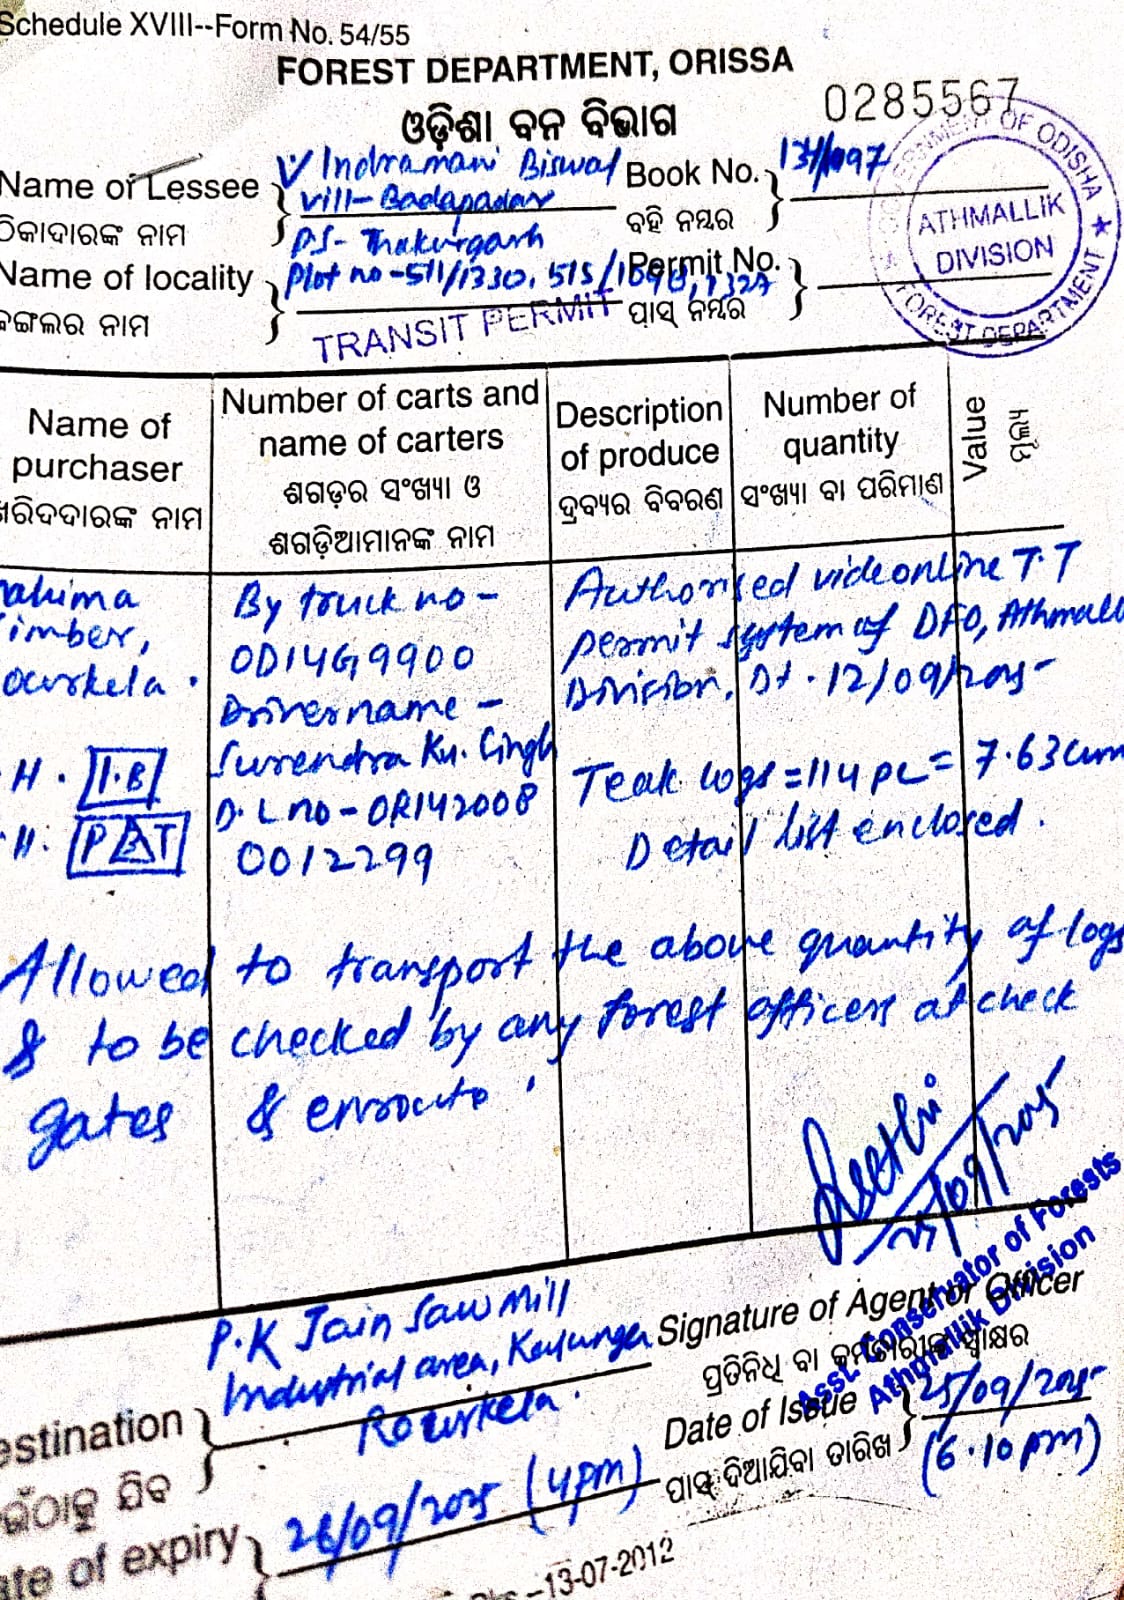 Schedule XVIII--Form No. 54/55
FOREST DEPARTMENT, ORISSA
ଓଡ଼ିଶା ବନ ବିଭାଗ
0285567
Name of Lessee
ଠିକାଦାରଙ୍କ ନାମ
Indramani Biswal
Vill- Badapadar
PS- Thakurgarh
Book No.
ବହି ନମ୍ବର
GOVERNMENT OF ODISHA
ATHMALLIK
DIVISION
FOREST DEPARTMENT
Name of locality
ଜଙ୍ଗଲର ନାମ
Plot no -511/1330, 515/
Permit No.
ପାସ୍ ନମ୍ବର
TRANSIT PERMIT
Name of
purchaser
ଖରିଦଦାରଙ୍କ ନାମ
Number of carts and
name of carters
ଶଗଡ଼ର ସଂଖ୍ୟା ଓ
ଶଗଡ଼ିଆମାନଙ୍କ ନାମ
Description
of produce
ଦ୍ରବ୍ୟର ବିବରଣ
Number of
quantity
ସଂଖ୍ୟା ବା ପରିମାଣ
Value
ମୂଲ୍ୟ
ahima
imber,
ourkela.
H. I.B
H.
By truck no -
OD14G9900
Driver name -
Surendra Ku. Singh
D.L no - OR142008
0012299
Authorised vide online T.T
permit system of DFO, Athmall
Division, Dt. 12/09/2025
Teak logs = 114 pc = 7.63 cum
Detail list enclosed.
Allowed to transport the above quantity of logs
& to be checked by any forest officers at check
gates & enroute.
25/09/2025
Asst. Conservator of Forests
Athmallik Division
Signature of Agent or Officer
ପ୍ରତିନିଧି ବା କର୍ମଚାରୀଙ୍କ ସ୍ୱାକ୍ଷର
estination
P.K Jain Saw Mill
Industrial area, Kalunga
Rourkela.
Date of Issue
ପାସ୍ ଦିଆଯିବା ତାରିଖ
25/09/2025
(6.10 pm)
ate of expiry
26/09/2025 (4pm)
-13-07-2012